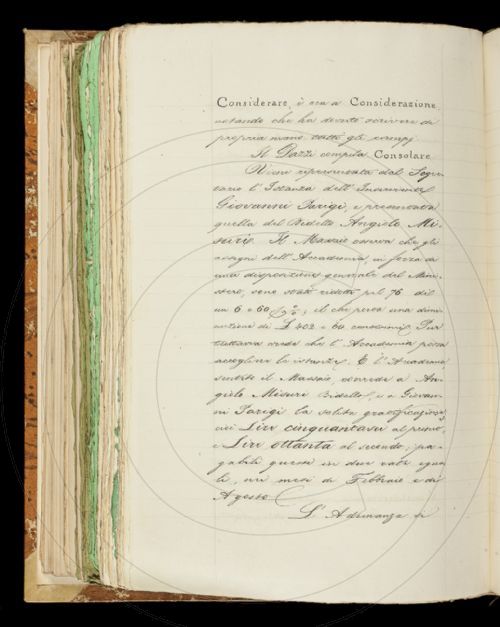 Considerare, è ora a Considerazione
notando che ha dovuto scrivere di
propria mano tutti gli esempj
Il Dazzi compila Consolare
Viene ripresentata dal Segre-
tario l'Istanza dell'Inserviente
Giovanni Parigi, e presentata
quella del Bidello Angiolo Mi-
suri. Il Massaio osserva che gli
assegni dell'Accademia, in forza di
una disposizione generale del Mini-
stero, sono stati ridotti pel 76 del
un 6 e 60 %; il che porta una dimi-
nuzione di L 402 e 60 centesimi. Pur
tuttavia crede che l'Accademia possa
accogliere le istanze. E l'Accademia,
sentito il Massaio, accorda a An-
giolo Misuri Bidello, e a Giovan-
ni Parigi la solita gratificazione,
cioè Lire cinquantasei al primo,
e Lire ottanta al secondo, pa-
gabili queste in due rate egua-
li, nei mesi di Febbraio e di
Agosto
L'Adunanza è